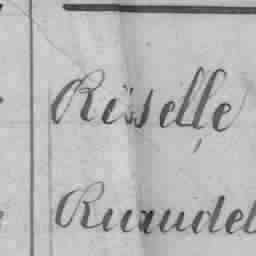 Risselle
Ruaudel